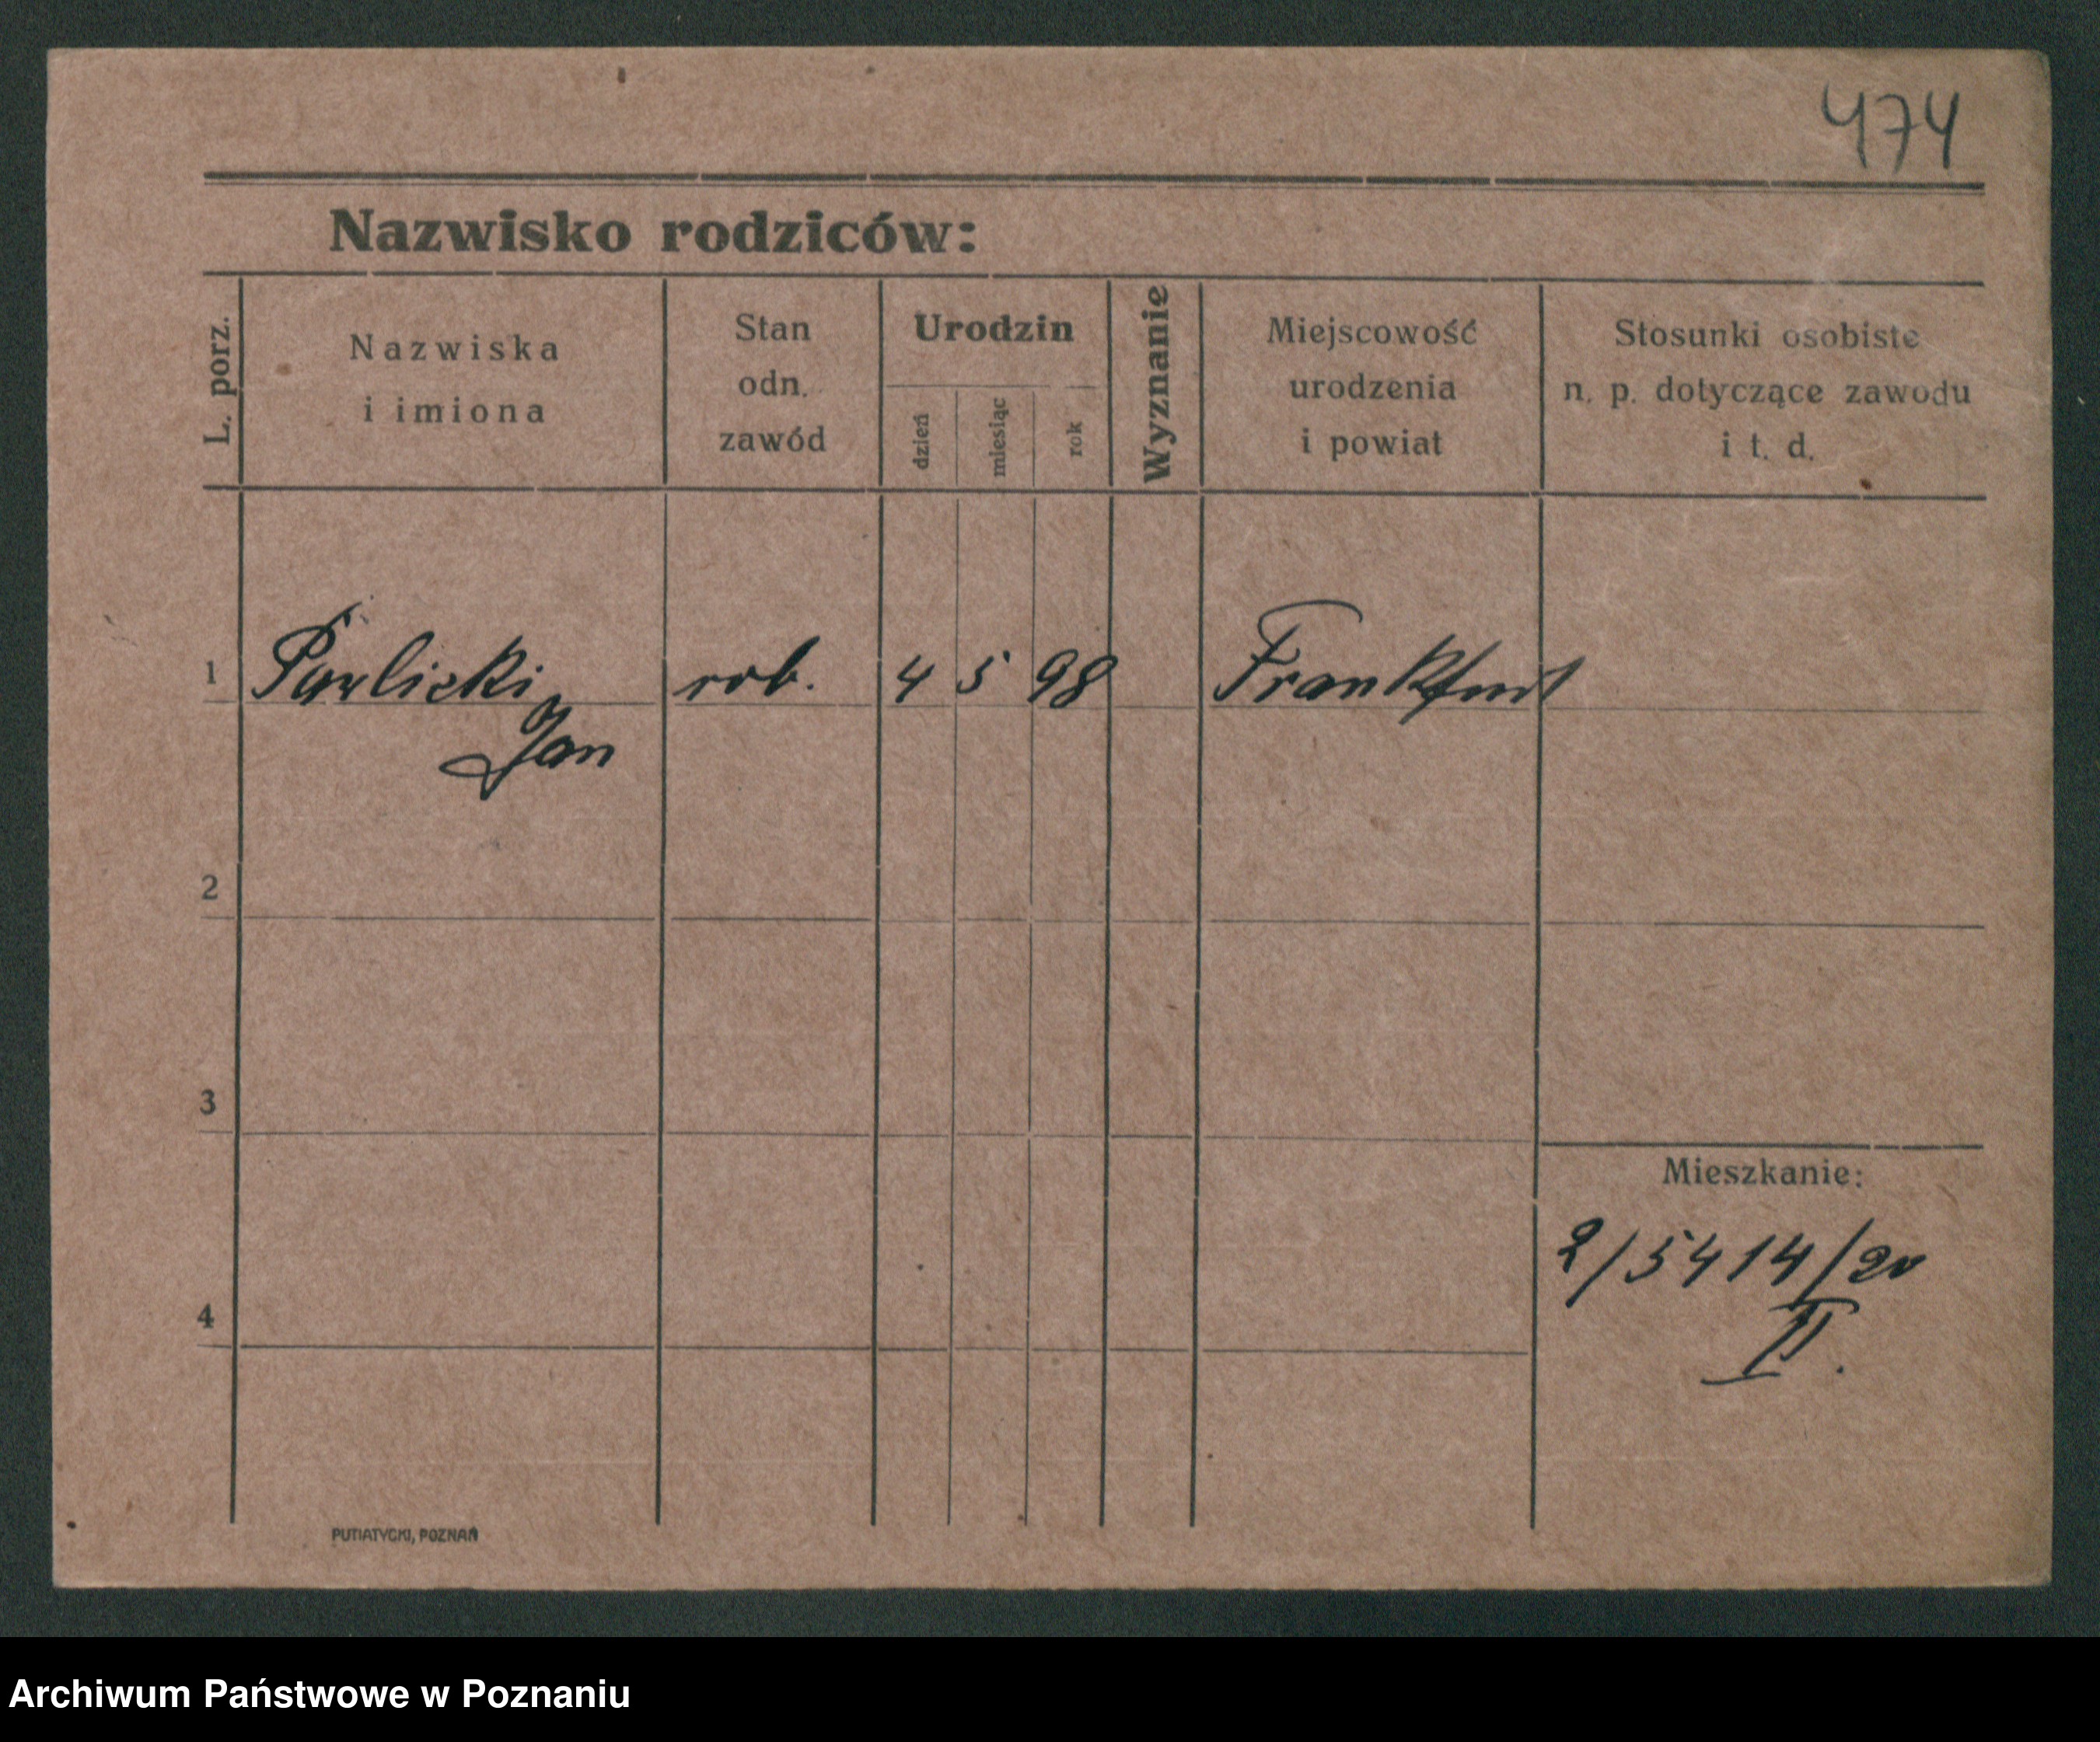 474
Nazwisko rodziców:
L. porz.
Nazwiska
i imiona
Stan
odn.
zawód
Urodzin
dzień
miesiąc
rok
Wyznanie
Miejscowość
urodzenia
i powiat
Stosunki osobiste
n. p. dotyczące zawodu
i t. d.
1 Pawlicki rob. 4 5 98 Frankfurt
Jan
2
3
Mieszkanie:
2/5414/20
4
II.
PUTIATYCKI, POZNAŃ
Archiwum Państwowe w Poznaniu